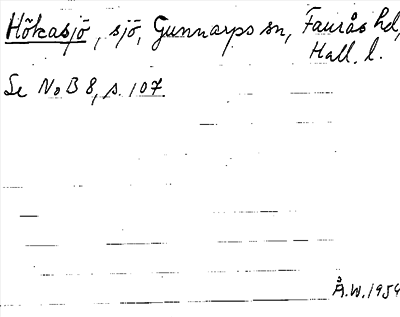 Hökasjö, sjö, Gunnarps sn, Faurås hd,
Hall. l.
Se No B 8, s. 107.
Å.W. 1954